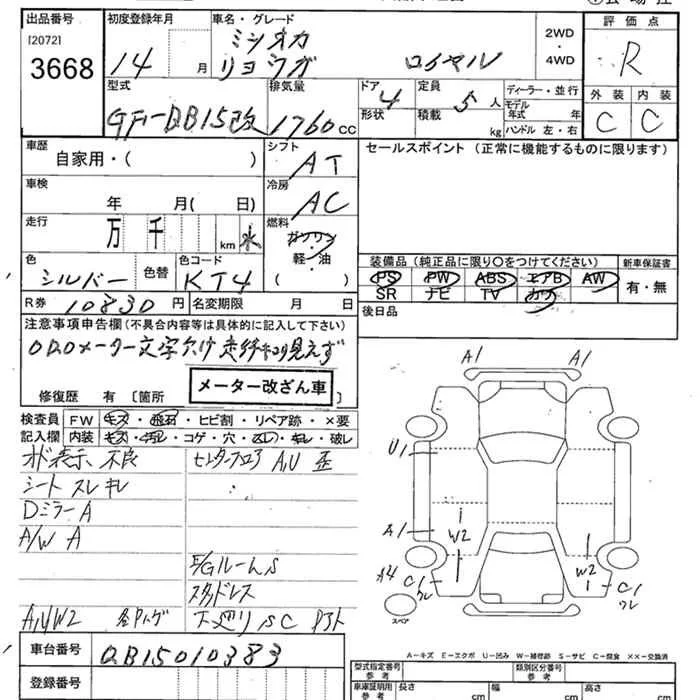 出品番号 初度登録年月 車名・グレード 評価点
[2072] 3668
14 月 ミツオカ 2WD
リョウガ ロイヤル 4WD R
型式 排気量 ドア 定員 ディーラー・並行 外装 内装
GF-QB15改 1760cc 4 5人 モデル年式 年 C C
形状 積載 kg ハンドル 左・右
車歴 シフト セールスポイント (正常に機能するものに限ります)
自家用・( ) AT
車検 冷房
年 月( 日) AC
走行 燃料
万 千 km 水 ガソリン
軽・油
( ・ )
色 色替 色コード 装備品 (純正品に限り〇をつけてください) 新車保証書
シルバー KT4 PS PW ABS エアB AW 有・無
R券 10830円 名変期限 月 日 SR ナビ TV カワ
注意事項申告欄 (不具合内容等は具体的に記入して下さい) 後日品
ODOメーター文字欠け 走行キロ見えず
修復歴 有 [箇所 メーター改ざん車 ]
検査員 FW キズ・飛石・ヒビ割・リペア跡・×要
記入欄 内装 キズ・汚れ・コゲ・穴・スレ・キレ・破レ
オド表示 不良 センターフロア A,U 歪
シート スレ キレ
Dミラー A
A/W A
E/Gルーム S
スタッドレス
A,U,W2 下廻り S C
A1 A1
U1
A1 W2
A4 C1 W2 C1
スペア
A-キズ E-エクボ U-凹み W-補修跡 S-サビ C-腐食 ××-交換済
車台番号 QB15010383
登録番号
型式指定番号 参考 類別区分番号 参考
車庫証明用 参考 長さ cm 幅 cm 高さ cm